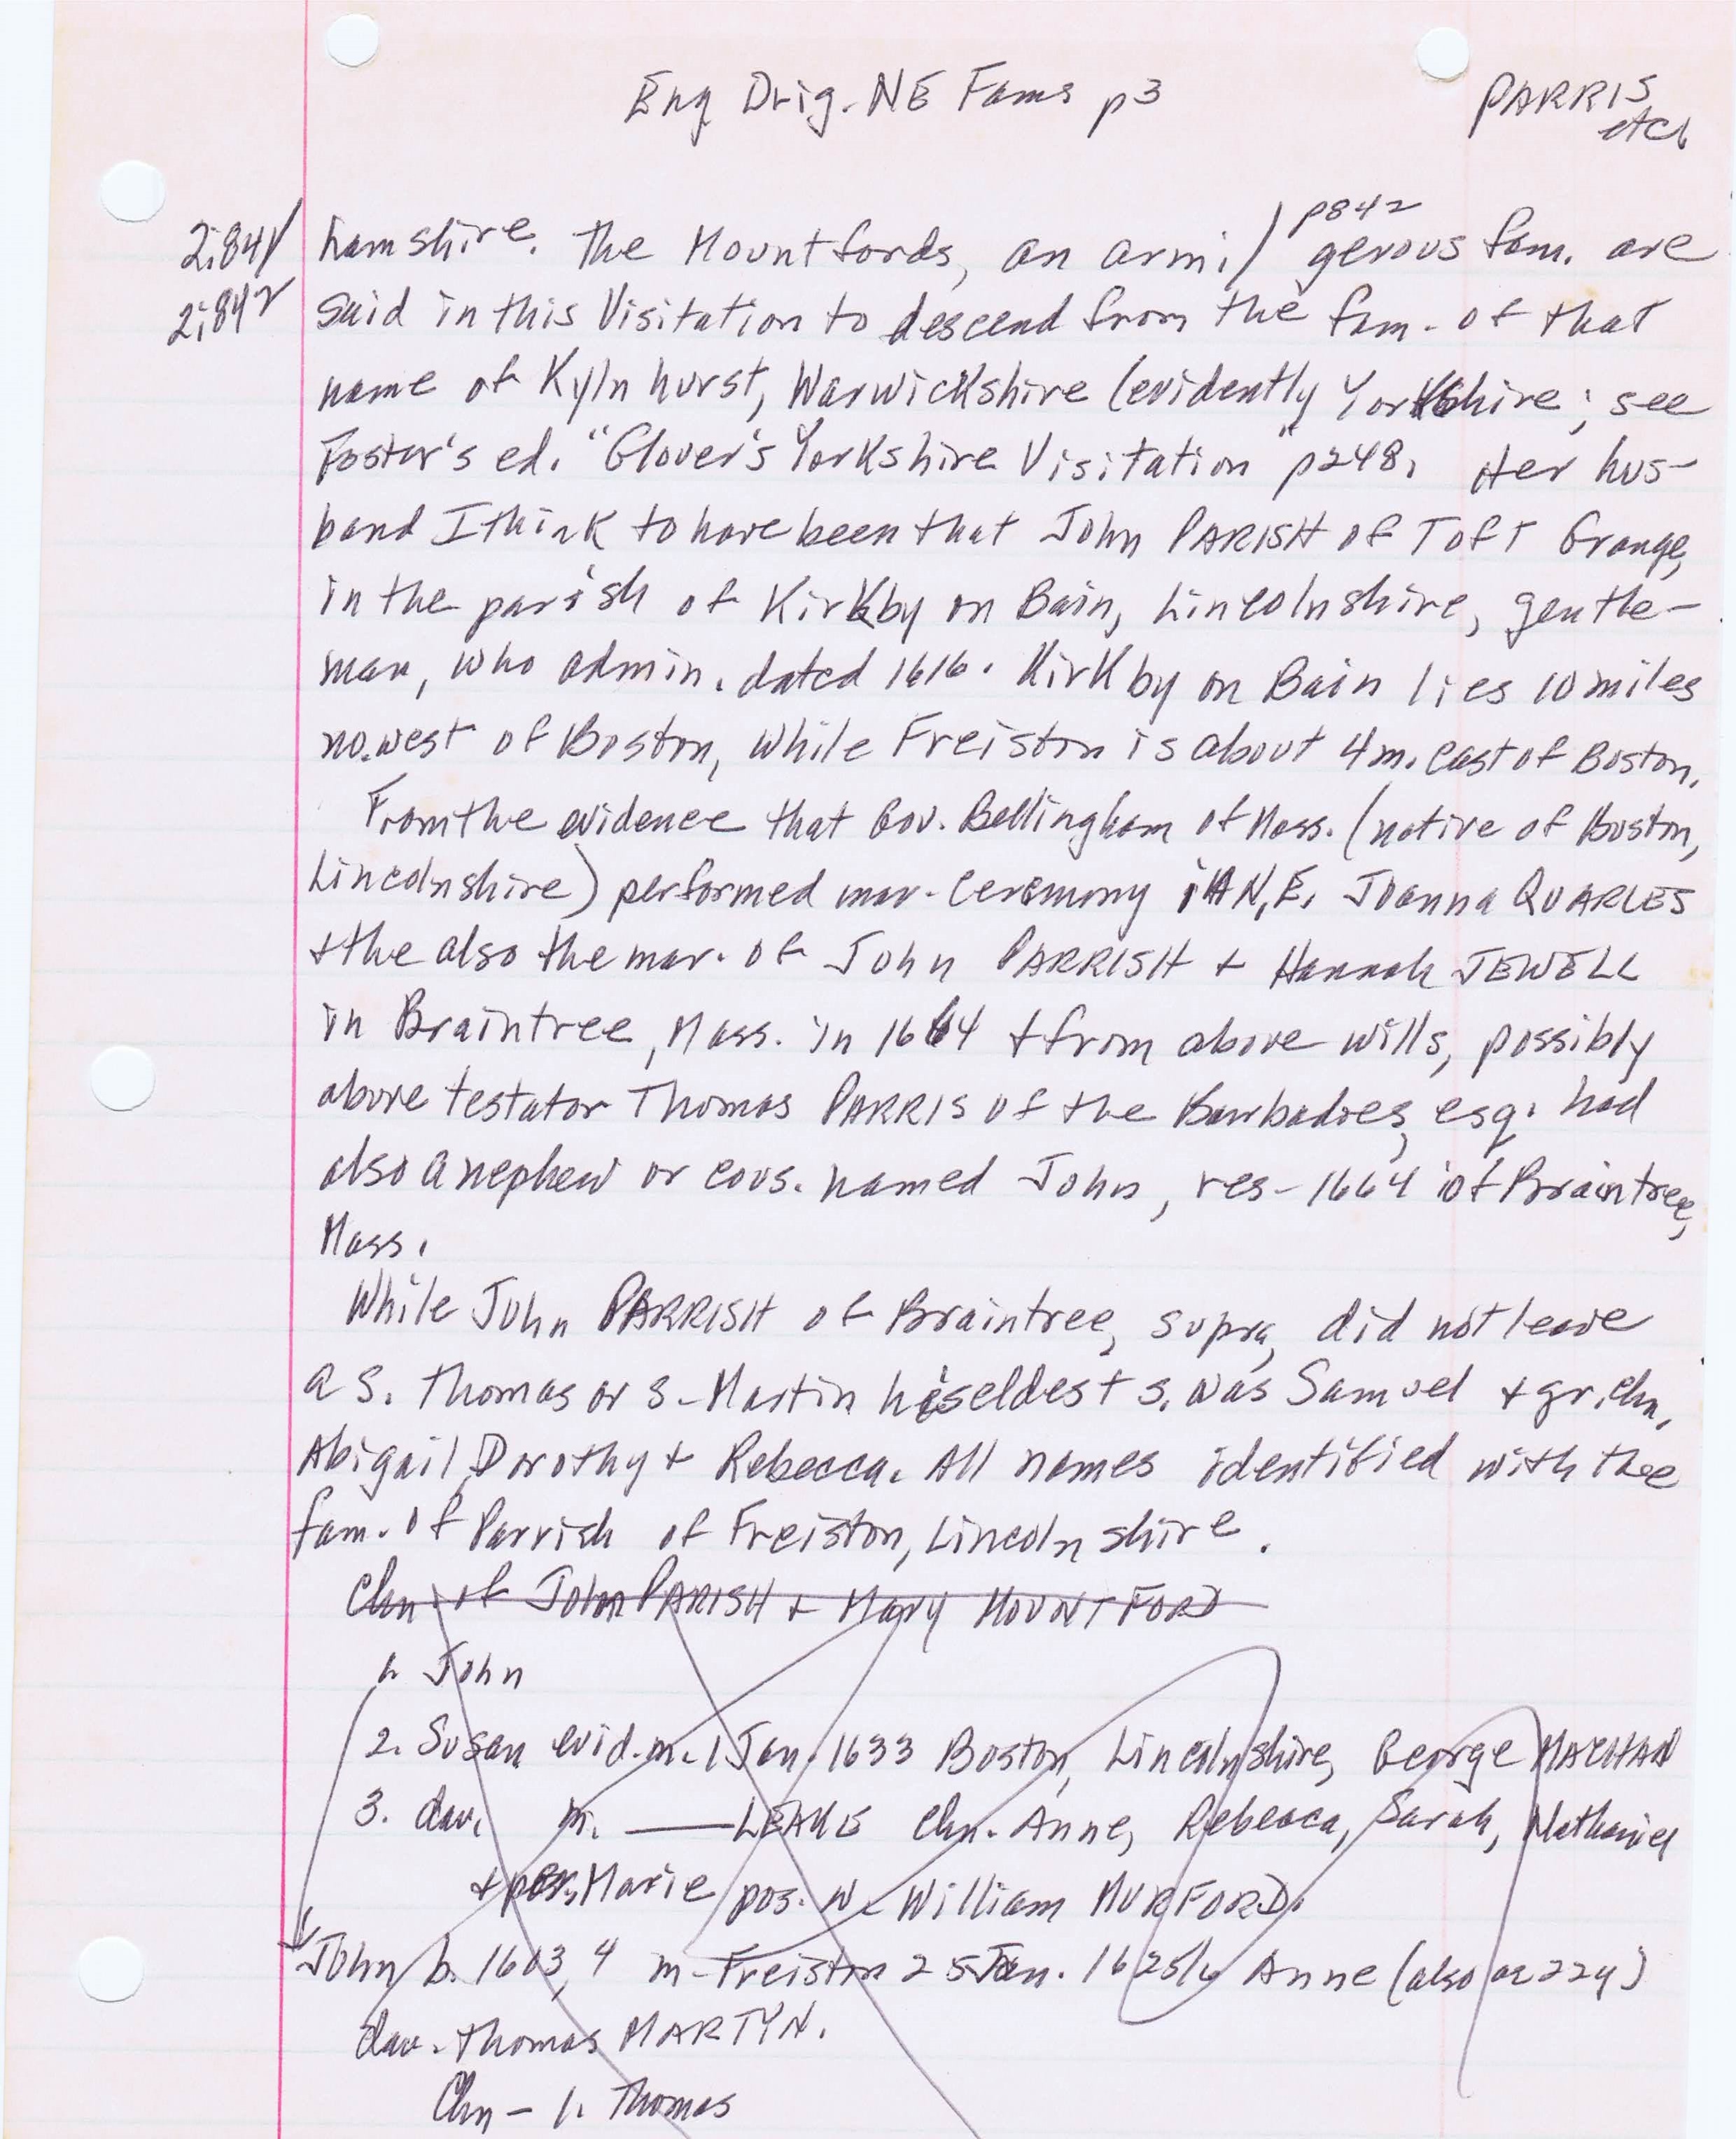 Eng Orig. NE Fams p3
PARRIS
etc.
p842
2;841/ hamshire. The Mountfords, an armi/ gerous fam. are
2;842 said in this Visitation to descend from the fam. of that
name of Kylnhurst, Warwickshire (evidently Yorkshire; see
Foster's ed. "Glover's Yorkshire Visitation" p248. Her hus-
band I think to have been that John PARISH of TOFT Grange,
in the parish of Kirkby on Bain, Lincolnshire, gentle-
man, who admin. dated 1616. Kirkby on Bain lies 10 miles
no.west of Boston, while Freiston is about 4 m. east of Boston.
From the evidence that Gov. Bellingham of Mass. (native of Boston,
Lincolnshire) performed mar. ceremony in N.E. Joanna QUARLES
+ the also the mar. of John PARRISH + Hannah JEWELL
in Braintree, Mass. in 1664 + from above wills, possibly
above testator Thomas PARRIS of the Barbadoes, esq. had
also a nephew or cous. named John, res- 1664 of Braintree,
Mass.
While John PARRISH of Braintree, supra, did not leave
a s. Thomas or s. Martin his eldest s. was Samuel + gr.chn.
Abigail, Dorothy + Rebecca. All names identified with the
fam. of Parrish of Freiston, Lincolnshire.
Chn. of John PARISH + Mary MOUNTFORD
1. John
2. Susan evid. m. 1 Jan. 1633 Boston, Lincolnshire, George MACHAN
3. dau. m. ——— LEAKE chn. Anne, Rebecca, Sarah, Nathaniel
+ Marie pos. w. William MURFORD.
John b. 1603,4 m- Freiston 25 Jan. 1625/6 Anne (also 224)
dau. Thomas MARTYN.
Chn - 1. Thomas